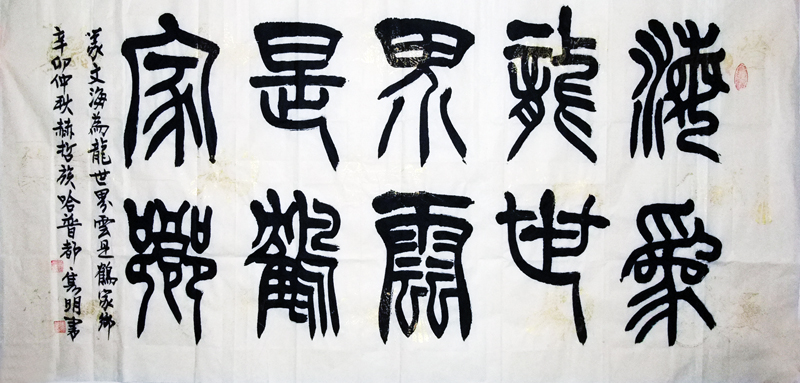 海為
龍世
界雲
是鶴
家鄉
篆文海為龍世界雲是鶴家鄉
辛卯仲秋赫哲族哈普都雋明書